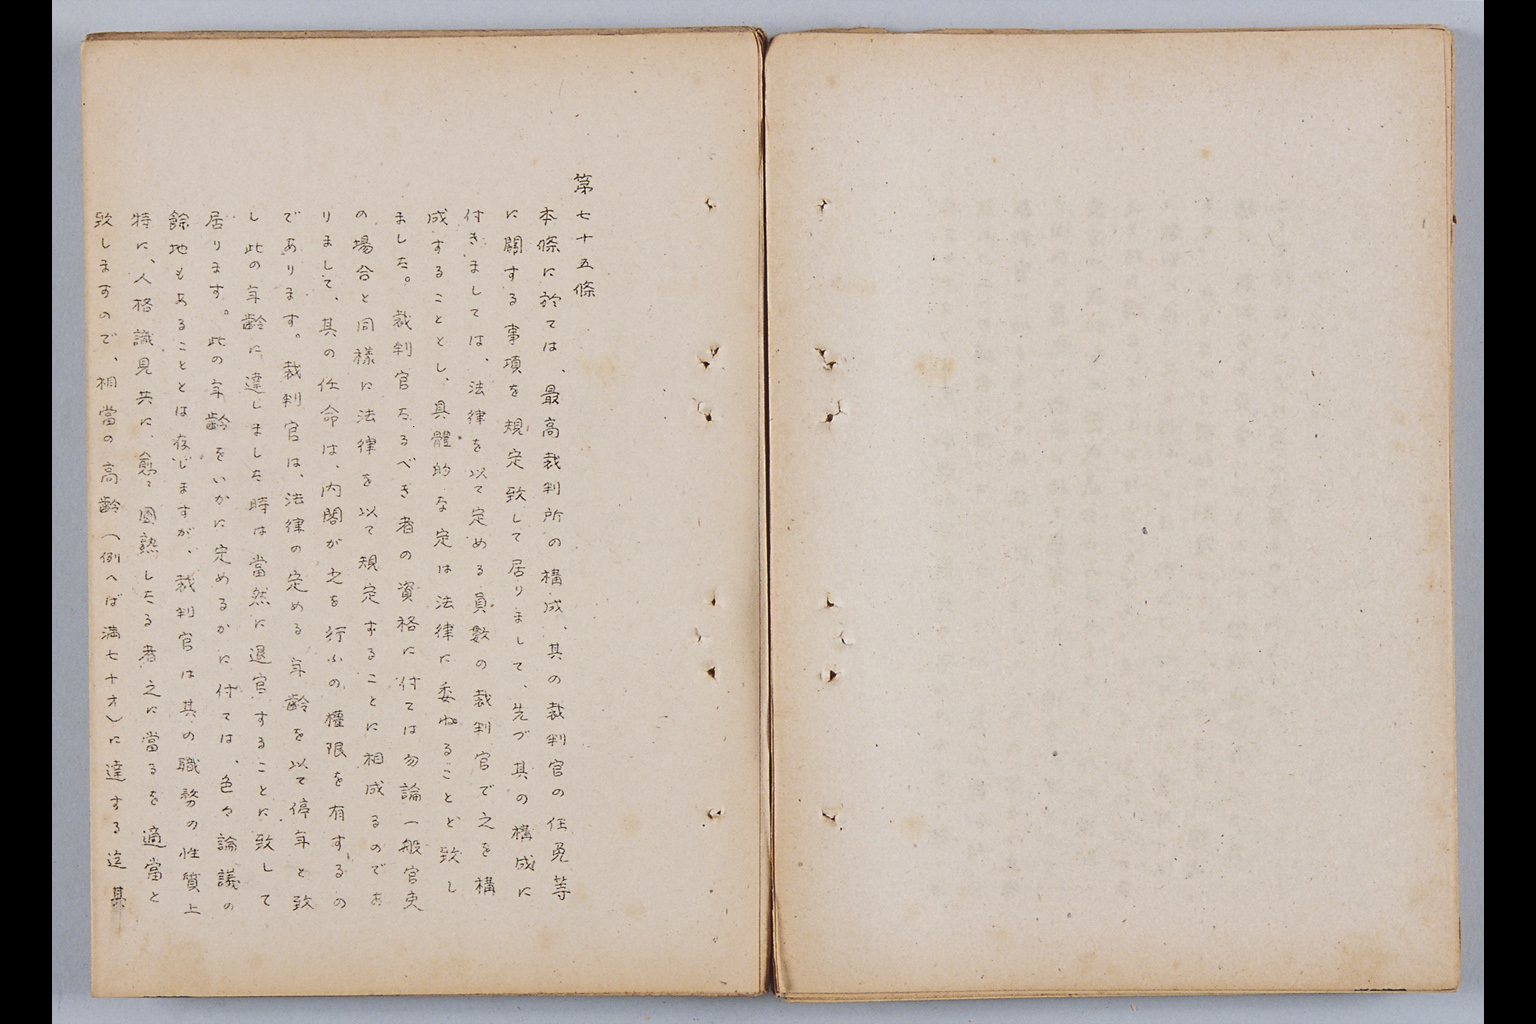 第七十五條
本條に於ては、最高裁判所の構成、其の裁判官の任免等
に關する事項を規定致して居りまして、先づ其の構成に
付きましては、法律を以て定める員數の裁判官で之を構
成することとし、具體的な定は法律に委ねることと致し
ました。裁判官たるべき者の資格に付ては勿論一般官吏
の場合と同樣に法律を以て規定することに相成るのであ
りまして、其の任命は、内閣が之を行ふの權限を有するの
であります。裁判官は、法律の定める年齡を以て停年と致
し此の年齡に達しました時は當然に退官することに致して
居ります。此の年齡をいかに定めるかに付ては、色々論議の
餘地もあることとは存じますが、裁判官は其の職務の性質上
特に、人格識見共に、愈々圓熟したる者之に當るを適當と
致しますので、相當の高齡(例へば滿七十才)に達する迄其